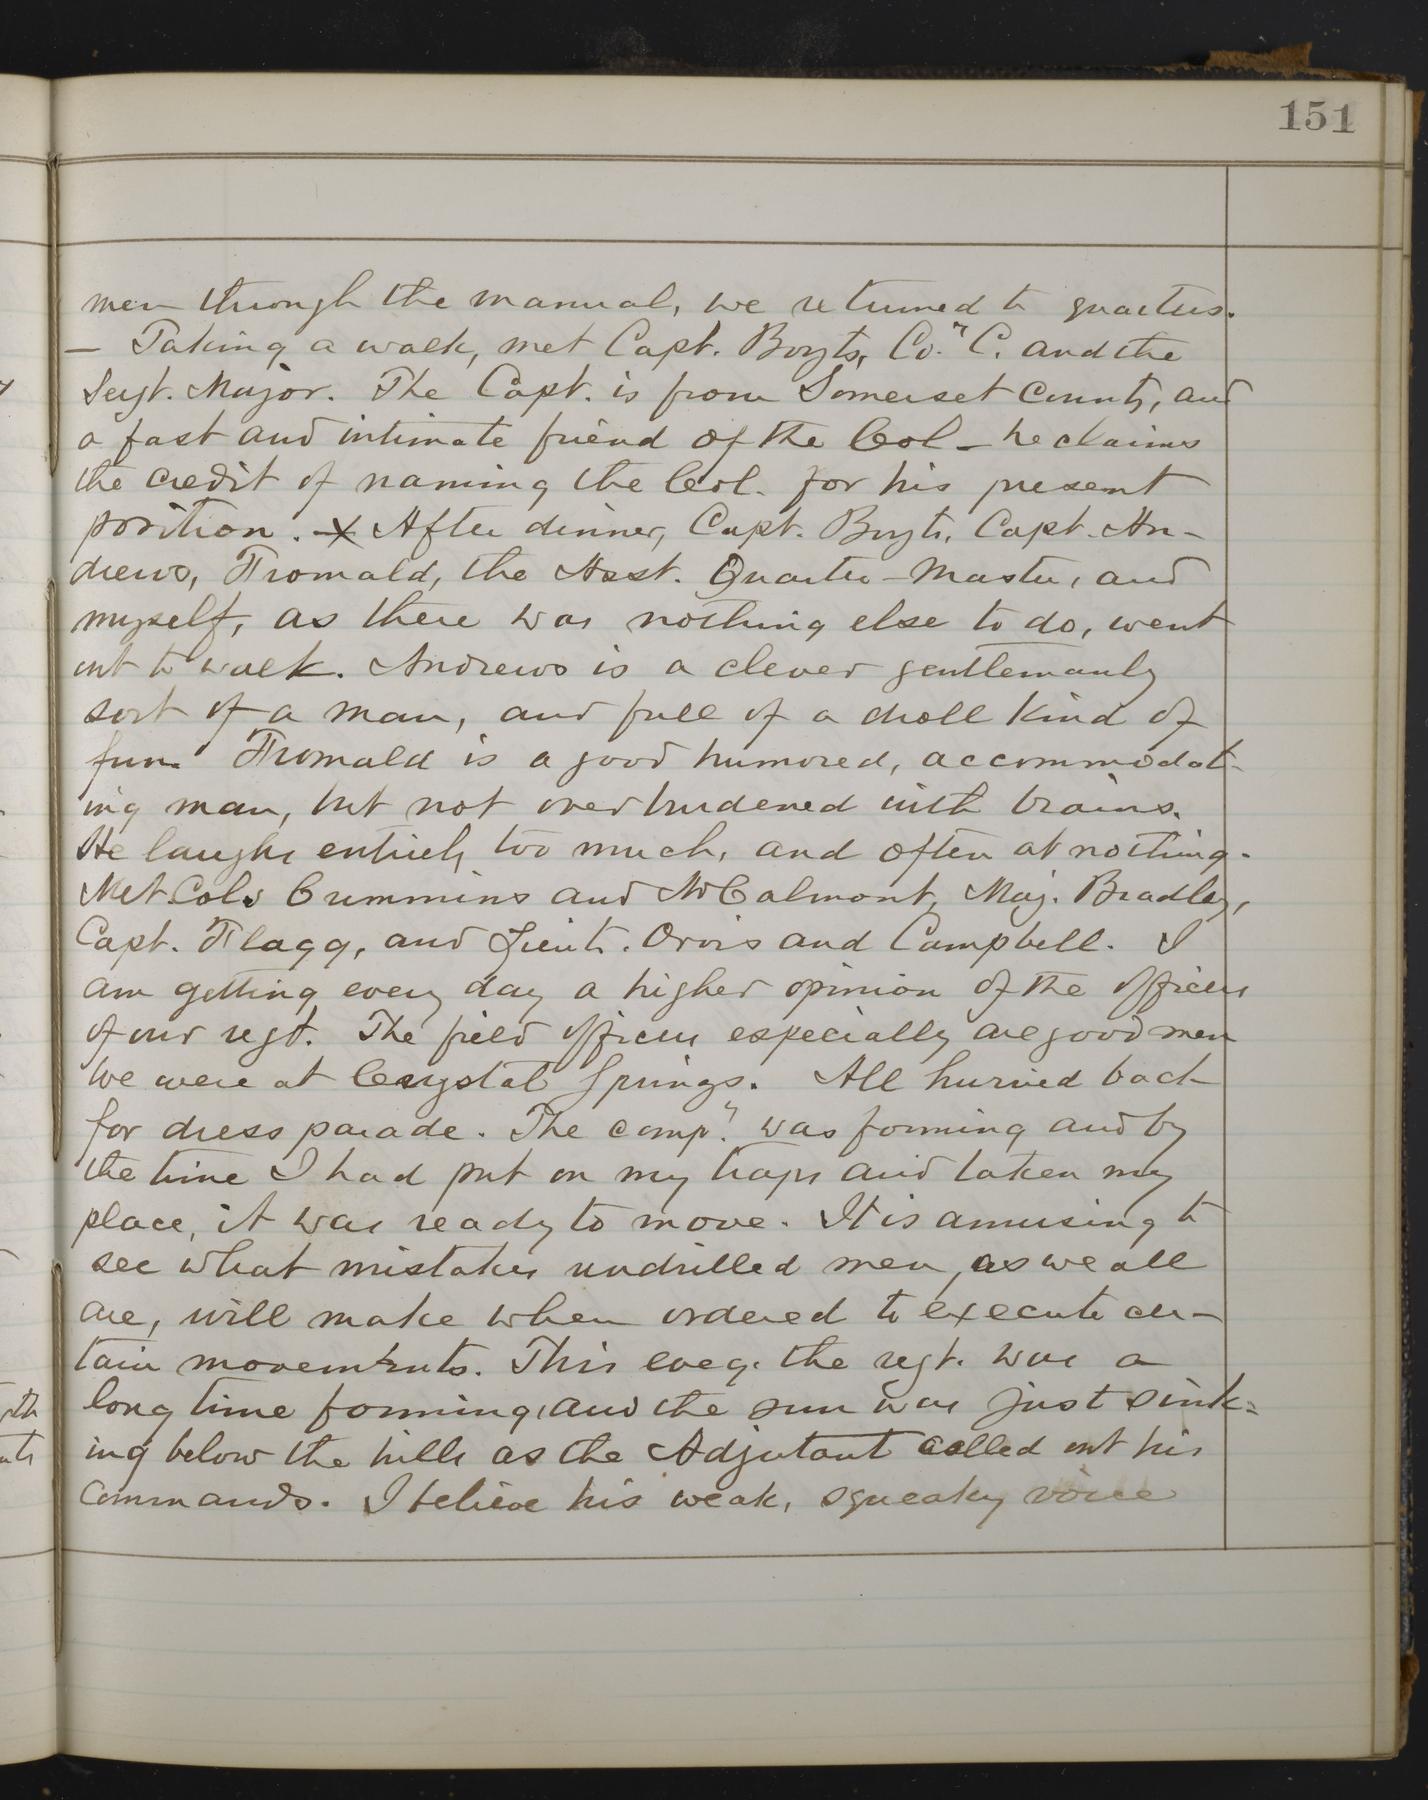 151
men through the manual, we returned to quarters.
— Taking a walk, met Capt. Boyts, Co. "C. and the
Sergt. Major. The Capt. is from Somerset County, and
a fast and intimate friend of the Col — he claims
the credit of naming the Col. for his present
position. — X After dinner, Capt. Boyts, Capt. An-
drews, Fromald, the Asst. Quarter-Master, and
myself, as there was nothing else to do, went
out to walk. Andrews is a clever gentlemanly
sort of a man, and full of a droll kind of
fun. Fromald is a good humored, accommodat-
ing man, but not overburdened with brains.
He laughs entirely too much, and often at nothing.
Met Cols Cummins and McCalmont, Maj. Bradley,
Capt. Flagg, and Lieuts. Orvis and Campbell. I
am getting every day a higher opinion of the officers
of our regt. The field officers especially are good men
We were at Crystal Springs. All hurried back
for dress parade. The comp." was forming and by
the time I had put on my traps and taken my
place, it was ready to move. It is amusing to
see what mistakes undrilled men, as we all
are, will make when ordered to execute cer-
tain movements. This eveg. the regt. was a
long time forming, and the sun was just sink=
ing below the hills as the Adjutant called out his
commands. I believe his weak, squeaky voice